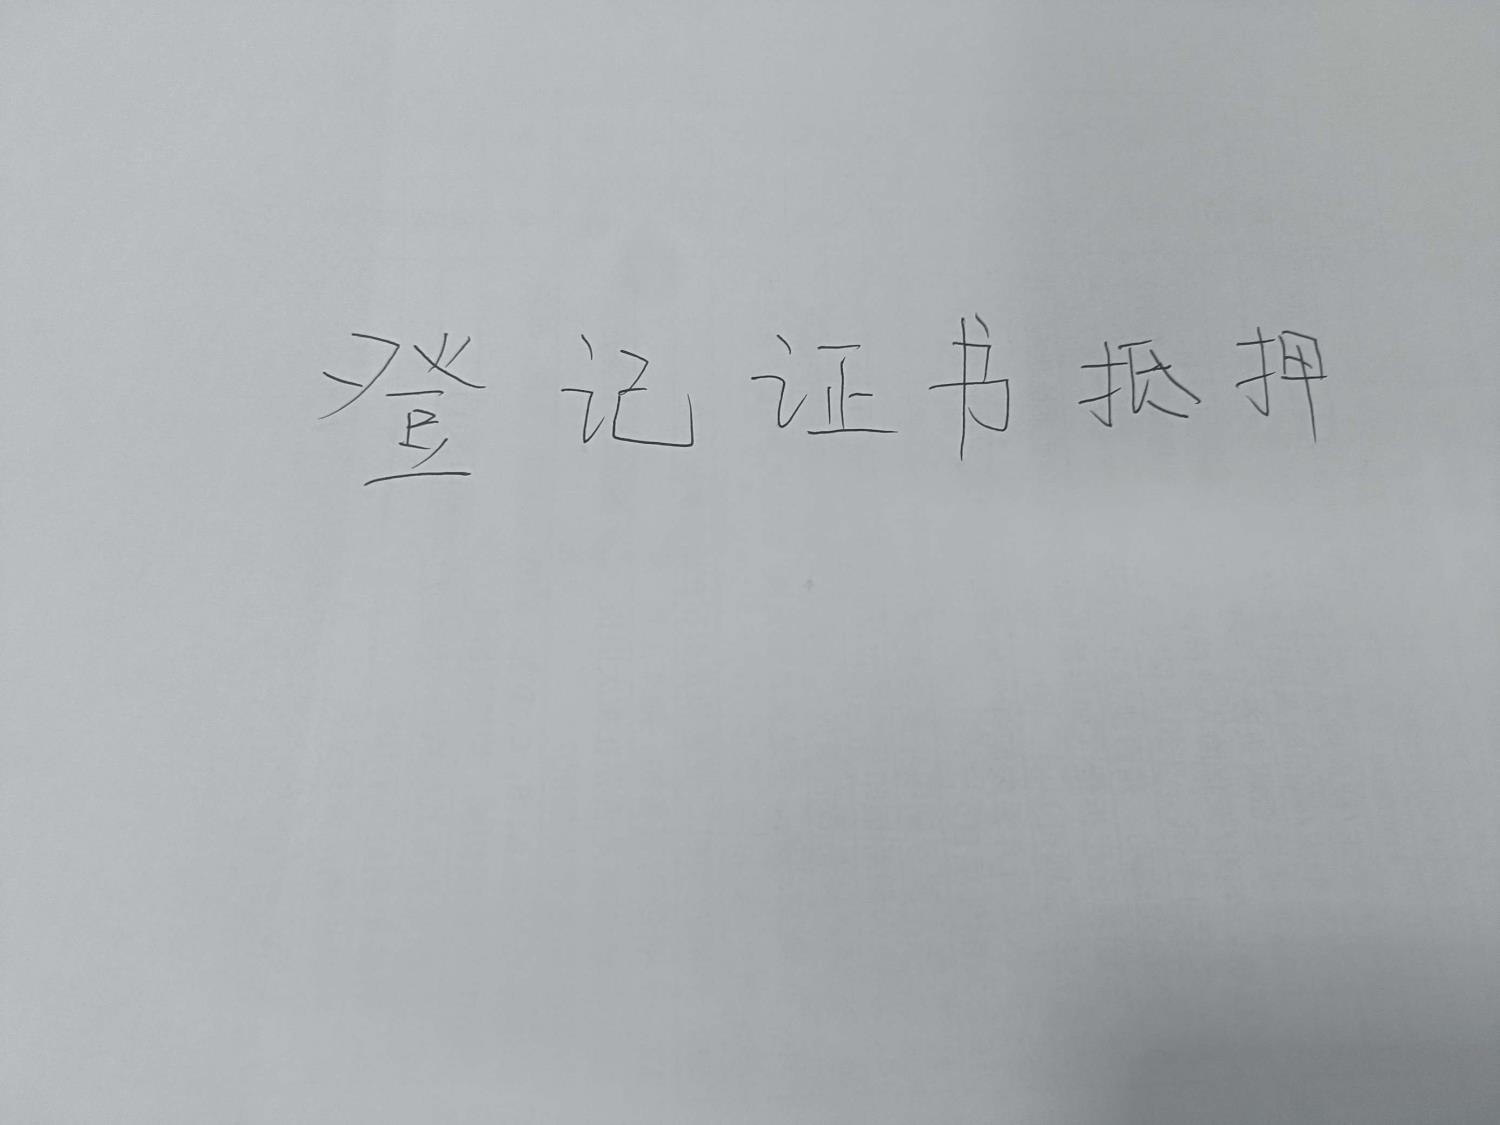 登记证书抵押